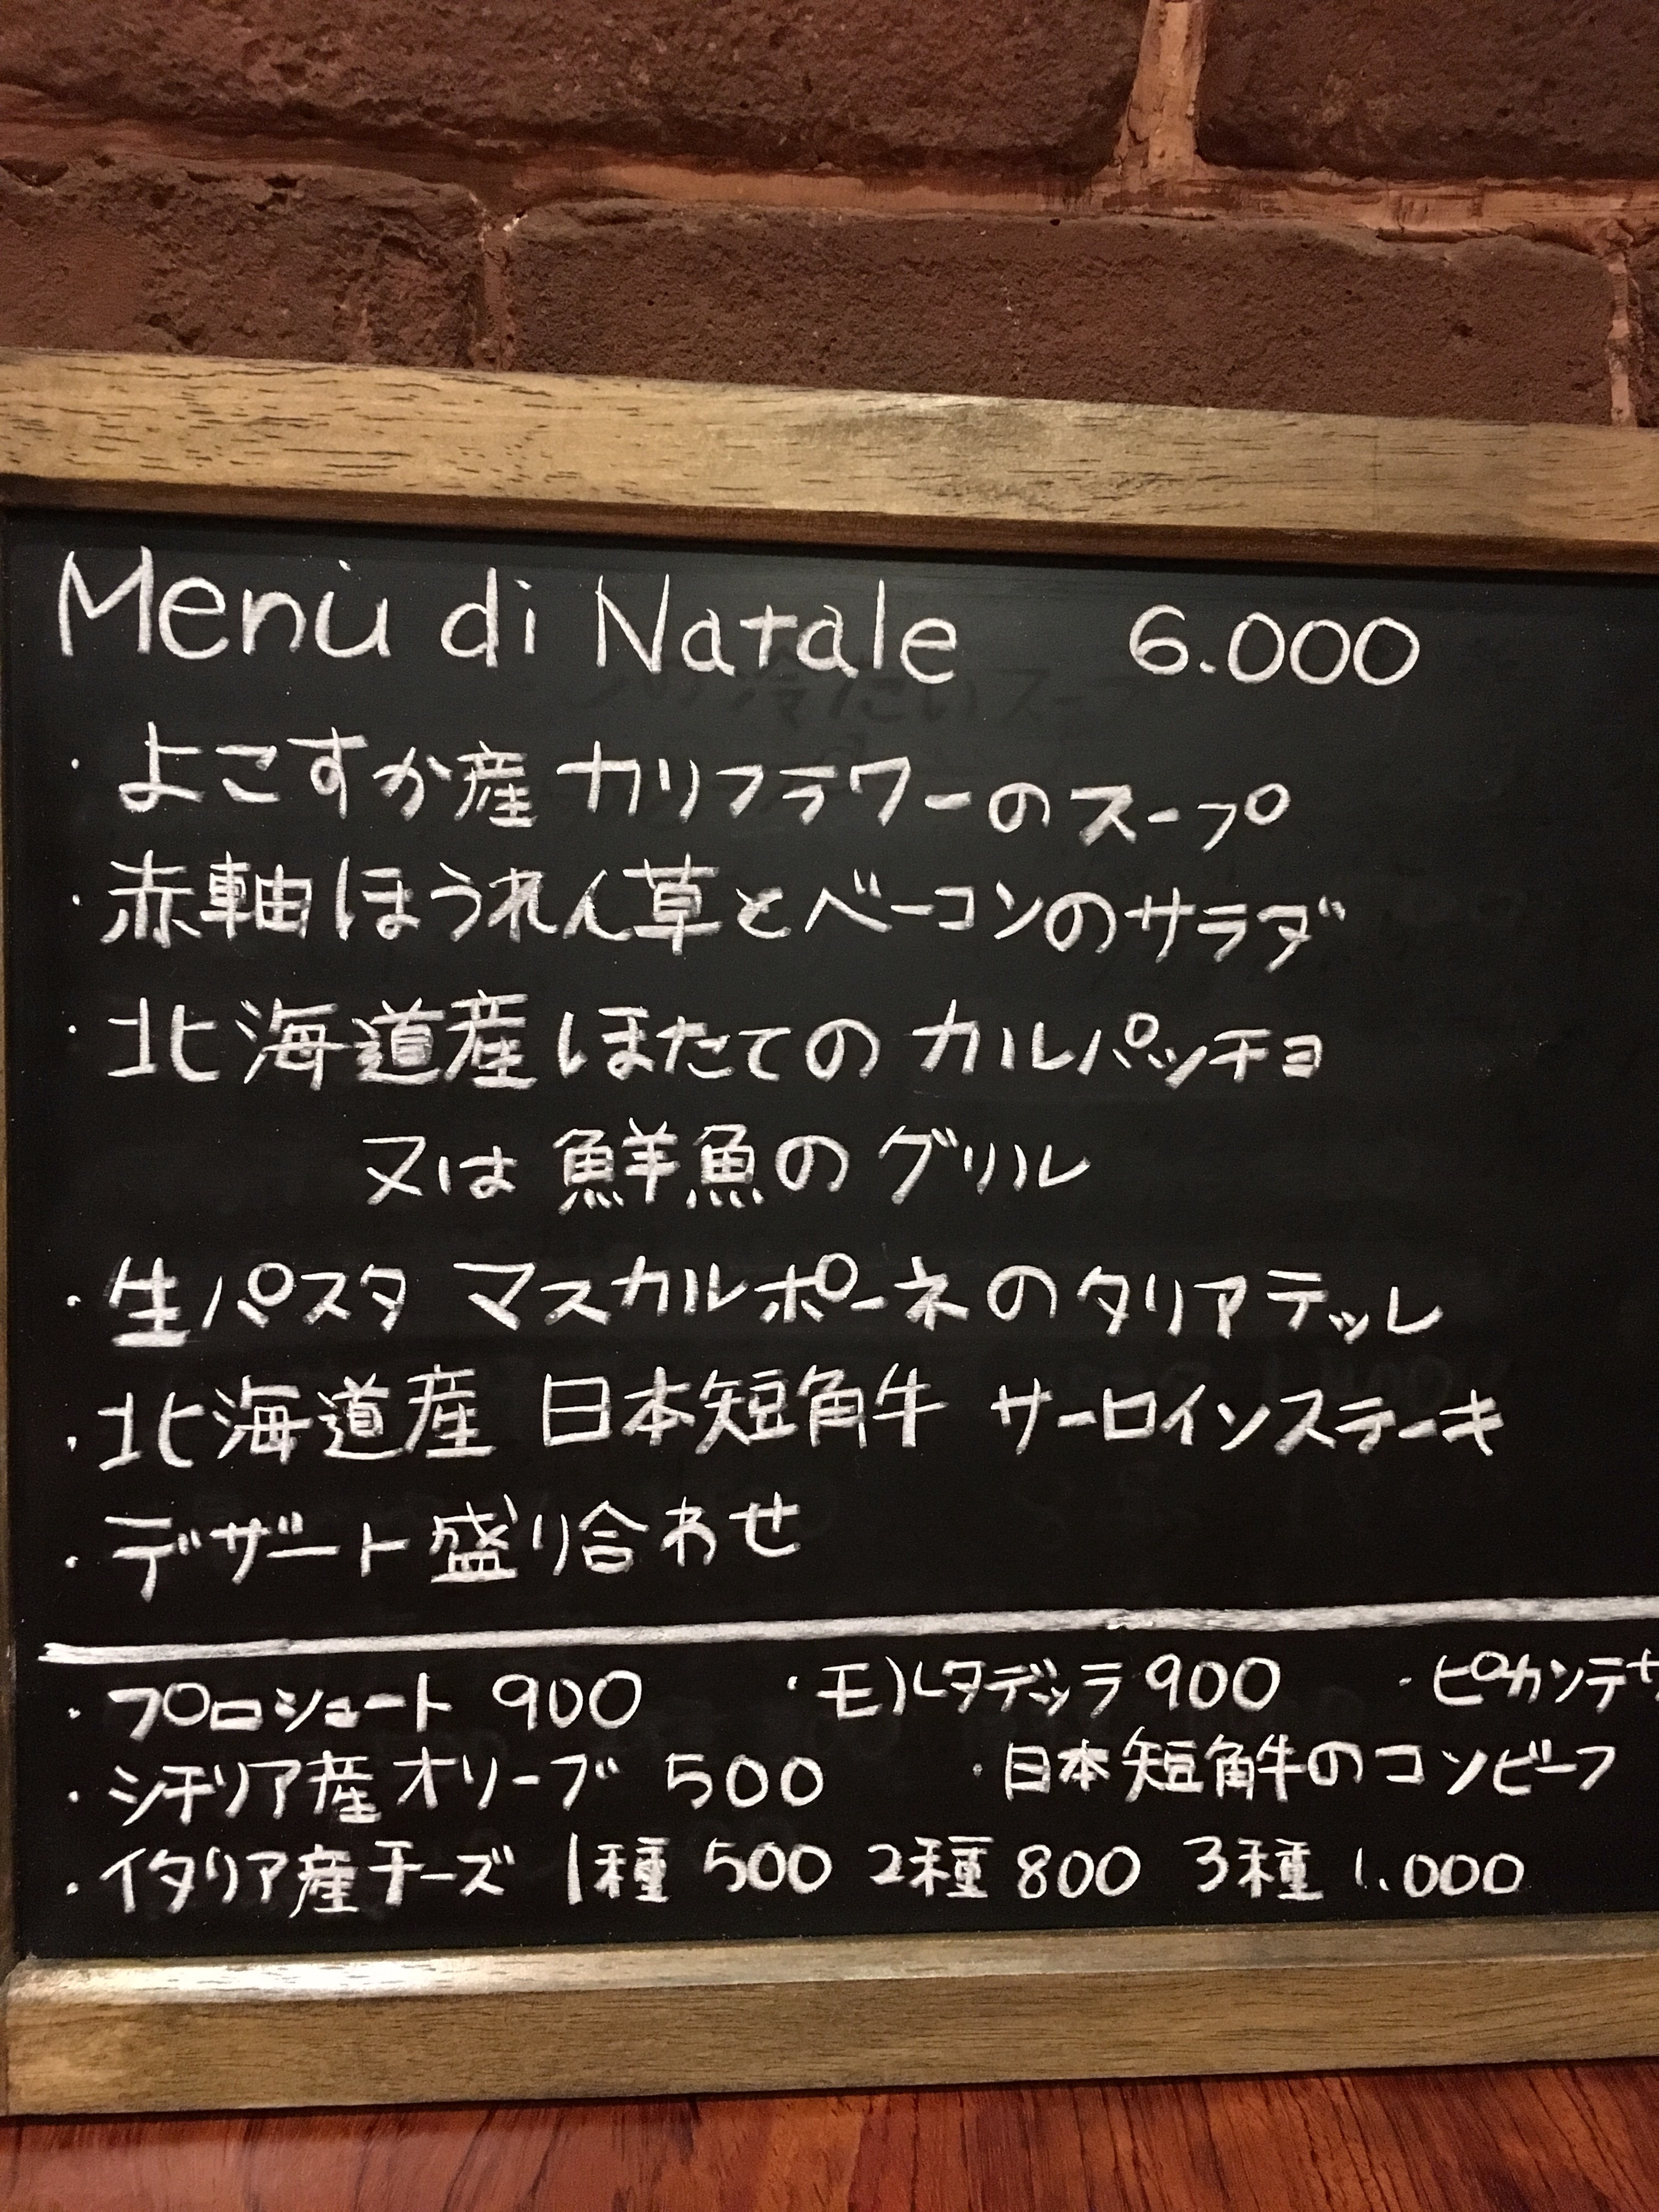 Menù di Natale 6.000
・よこすか産 カリフラワーのスープ
・赤軸ほうれん草とベーコンのサラダ
・北海道産ほたての カルパッチョ
又は 鮮魚の グリル
・生パスタ マスカルポーネのタリアテッレ
・北海道産 日本短角牛 サーロインステーキ
・デザート盛り合わせ
・プロシュート 900 ・モルタデッラ 900 ・ピカンテサ
・シチリア産オリーブ 500 ・日本短角牛のコンビーフ
・イタリア産チーズ 1種 500 2種 800 3種 1.000